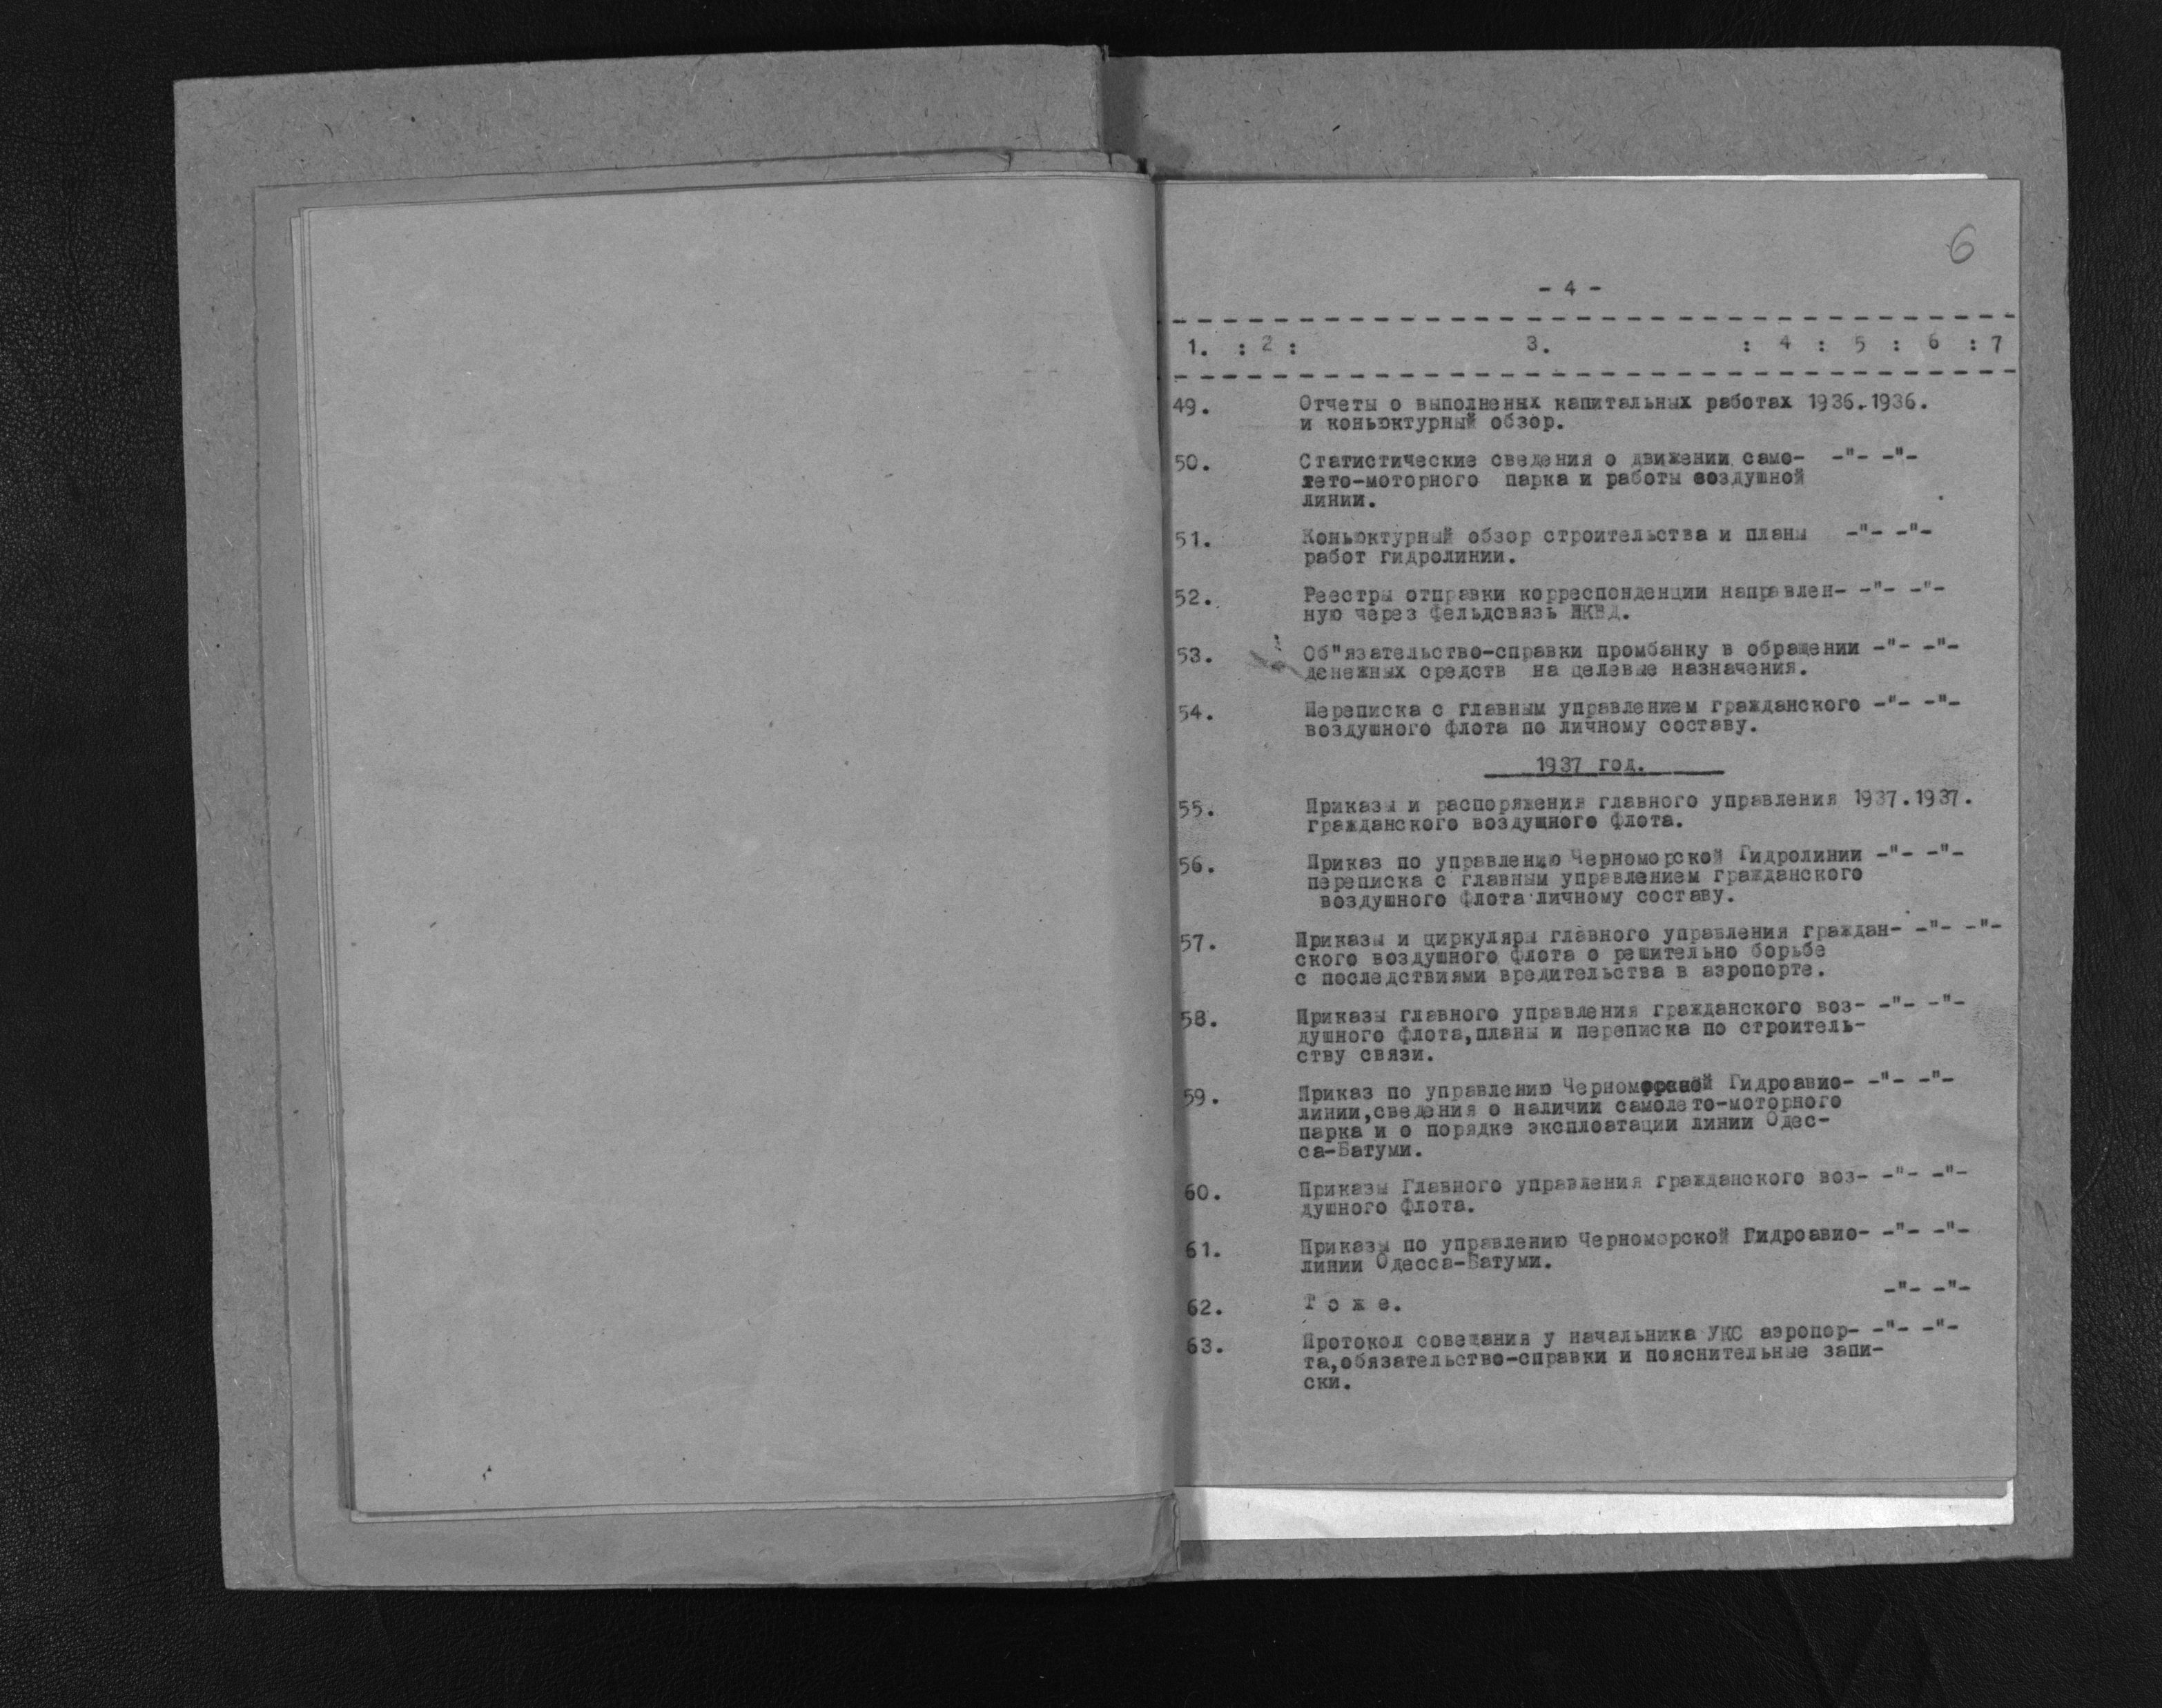 6
- 4 -
1. : 2 : 3. : 4 : 5 : 6 : 7
49. Отчеты о выполненых капитальных работах 1936.-1936.
и коньюктурный обзор.
50. Статистические сведения о движении само- -"- -"-
лето-моторного парка и работы воздушной
линии.
51. Коньюктурный обзор строительства и планы -"- -"-
работ гидролинии.
52. Реестры отправки корреспонденции направлен- -"- -"-
ную через фельдсвязь НКВД.
53. Об"язательство-справки промбанку в обращении -"- -"-
денежных средств на целевые назначения.
54. Переписка с главным управлением гражданского -"- -"-
воздушного флота по личному составу.
1937 год.
55. Приказы и распоряжения главного управления 1937.1937.
гражданского воздушного флота.
56. Приказ по управлению Черноморской Гидролинии -"- -"-
переписка с главным управлением гражданского
воздушного флота личному составу.
57. Приказы и циркуляры главного управления граждан- -"- -"-
ского воздушного флота о решительно борьбе
с последствиями вредительства в аэропорте.
58. Приказы главного управления гражданского воз- -"- -"-
душного флота,планы и переписка по строитель-
ству связи.
59. Приказ по управлению Черноморской Гидроавио- -"- -"-
линии,сведения о наличии самолето-моторного
парка и о порядке эксплоатации линии Одес-
са-Батуми.
60. Приказы Главного управления гражданского воз- -"- -"-
душного флота.
61. Приказы по управлению Черноморской Гидроавио- -"- -"-
линии Одесса-Батуми.
62. Т о ж е. -"- -"-
63. Протокол совещания у начальника УКС аэропор- -"- -"-
та,обязательство-справки и пояснительные запи-
ски.